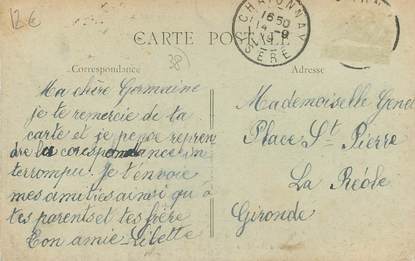 12€
38
CHATONNAY
1650
14-9
ISÈRE
CARTE POSTALE
Correspondance
Adresse
Ma chère Germaine
je te remercie de ta
carte et je pense repren
dre la corespondance in
terrompu. Je t'envoie
mes amitiés ainsi qu'à
tes parents et tes frère
Ton amie
Mademoiselle
Place St Pierre
La Réole
Gironde